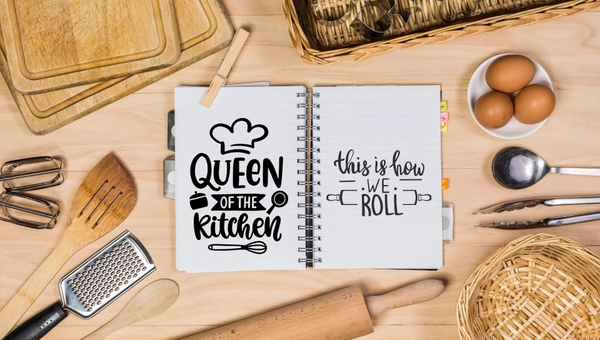 QUEEN
OF THE
kitchen
this is how
WE
ROLL